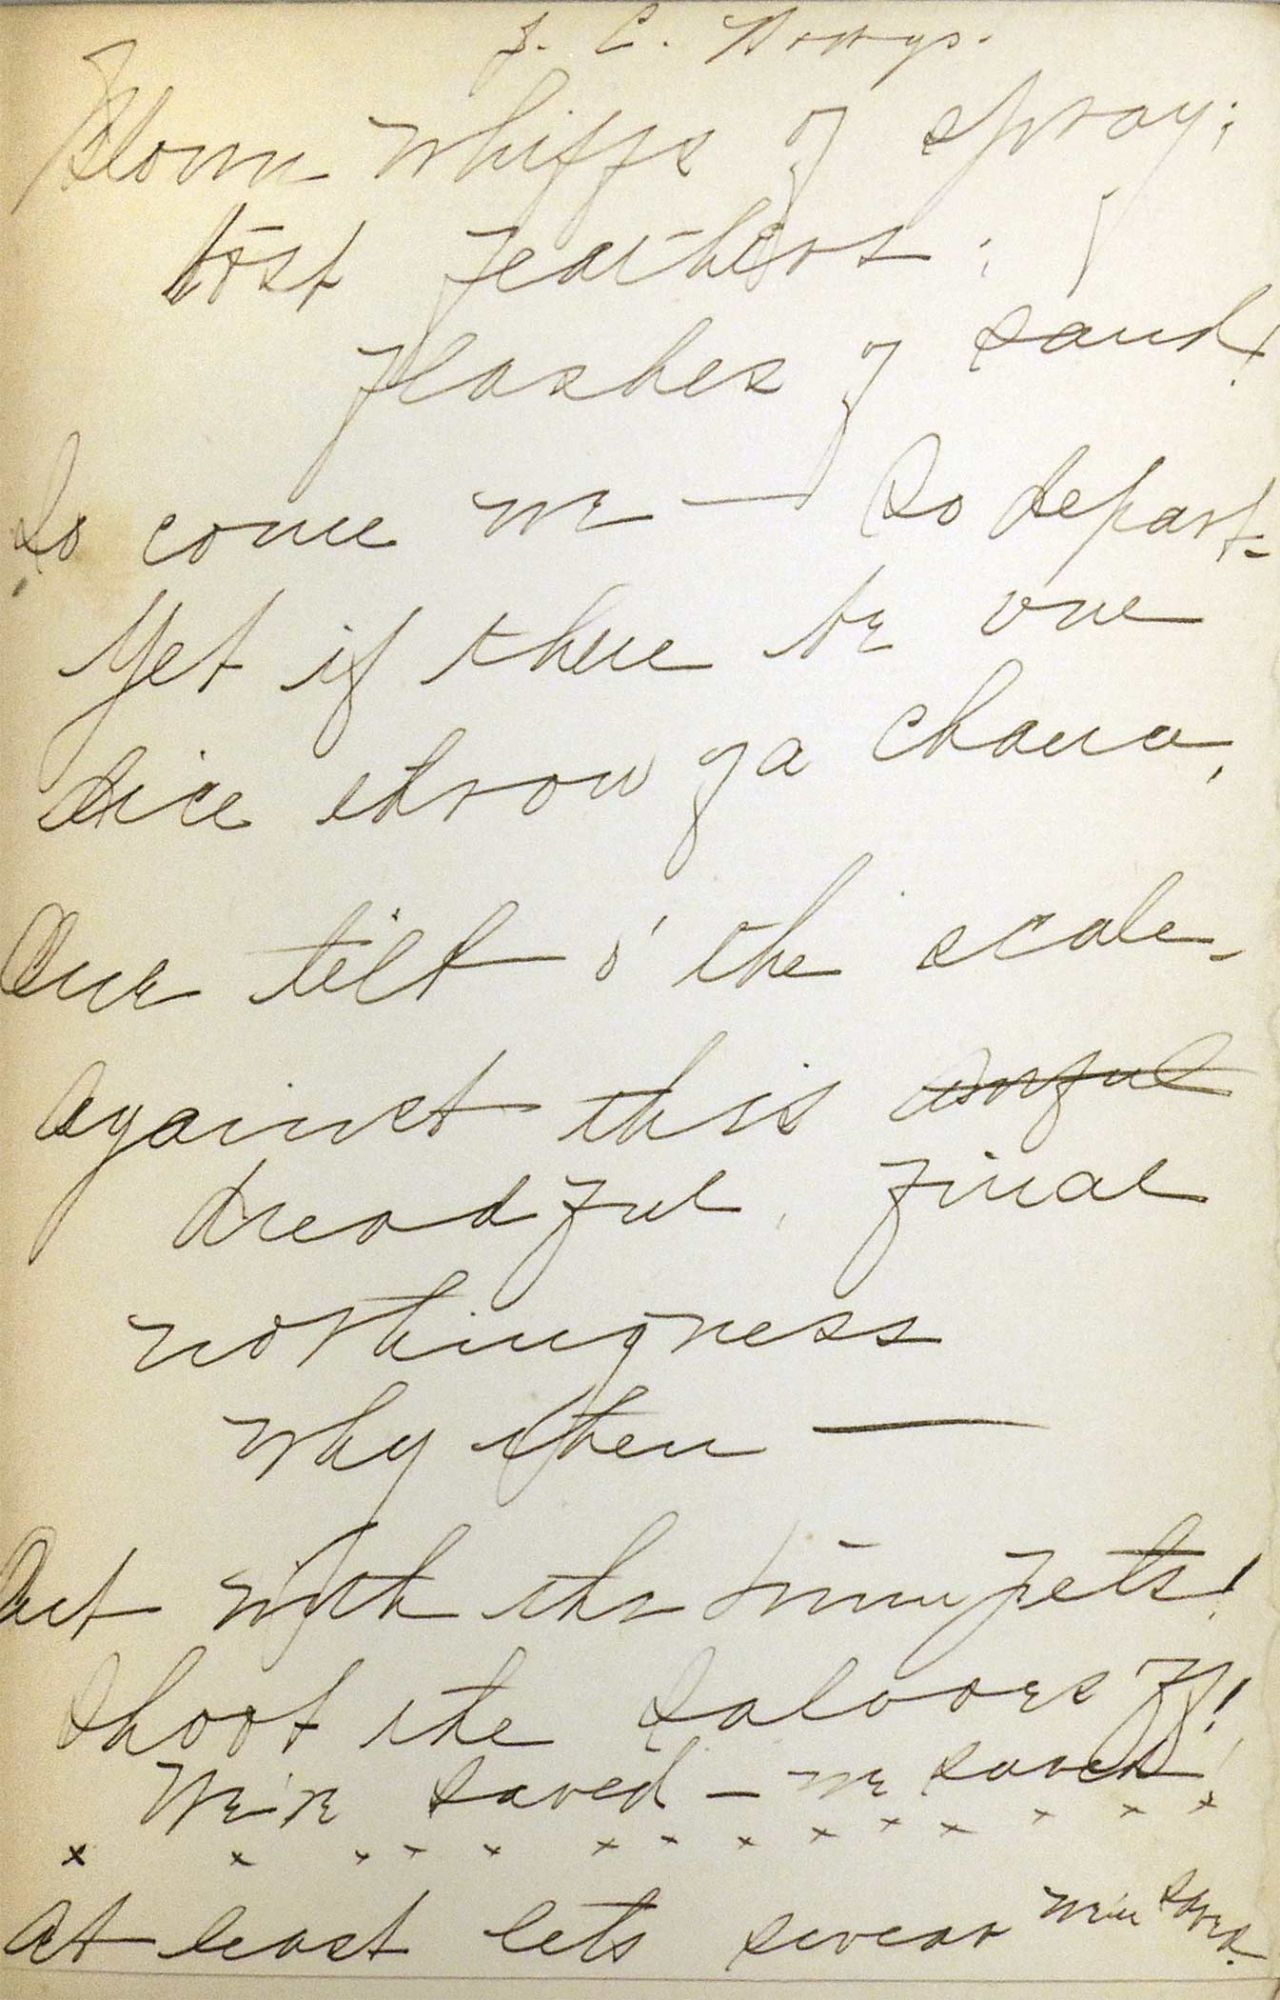 J. C.
Blown whiffs of spray;
tost feathers;
flashes of sand!
So come we — So depart-
Yet if there be one
dice throw of a chance,
One tilt o' the scale -
Against this awful
dreadful, final
nothingness
Why then —
Out with the trumpets!
Shoot the salvoes off!
We're saved - we saved!
x x x x x x x x x x x x x x
At least lets swear we're saved.